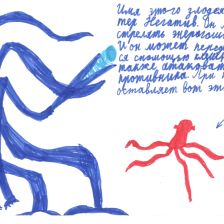 Имя этого злодея
тер Негатив. Он
стрелять энергош
И он может перед
ся с помощью
также атаковать
противника. При
оставляет вот эт